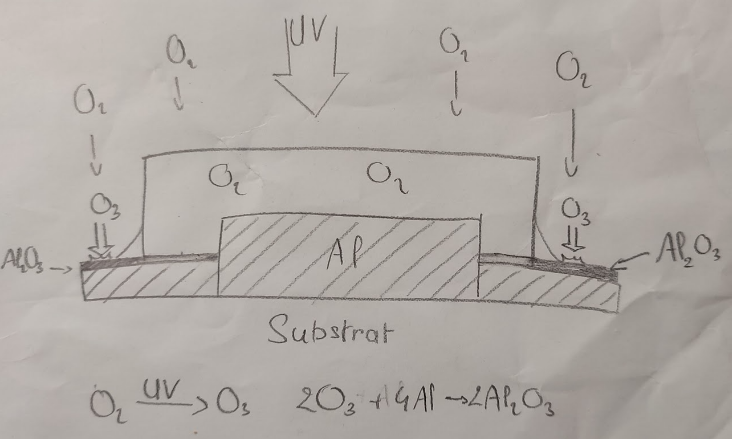 UV
O₂ O₂
O₂ O₂
O₂ O₂
O₃ O₃
Al₂O₃ Al Al₂O₃
Substrat
O₂ UV→ O₃ 2O₃ + 4Al → 2Al₂O₃